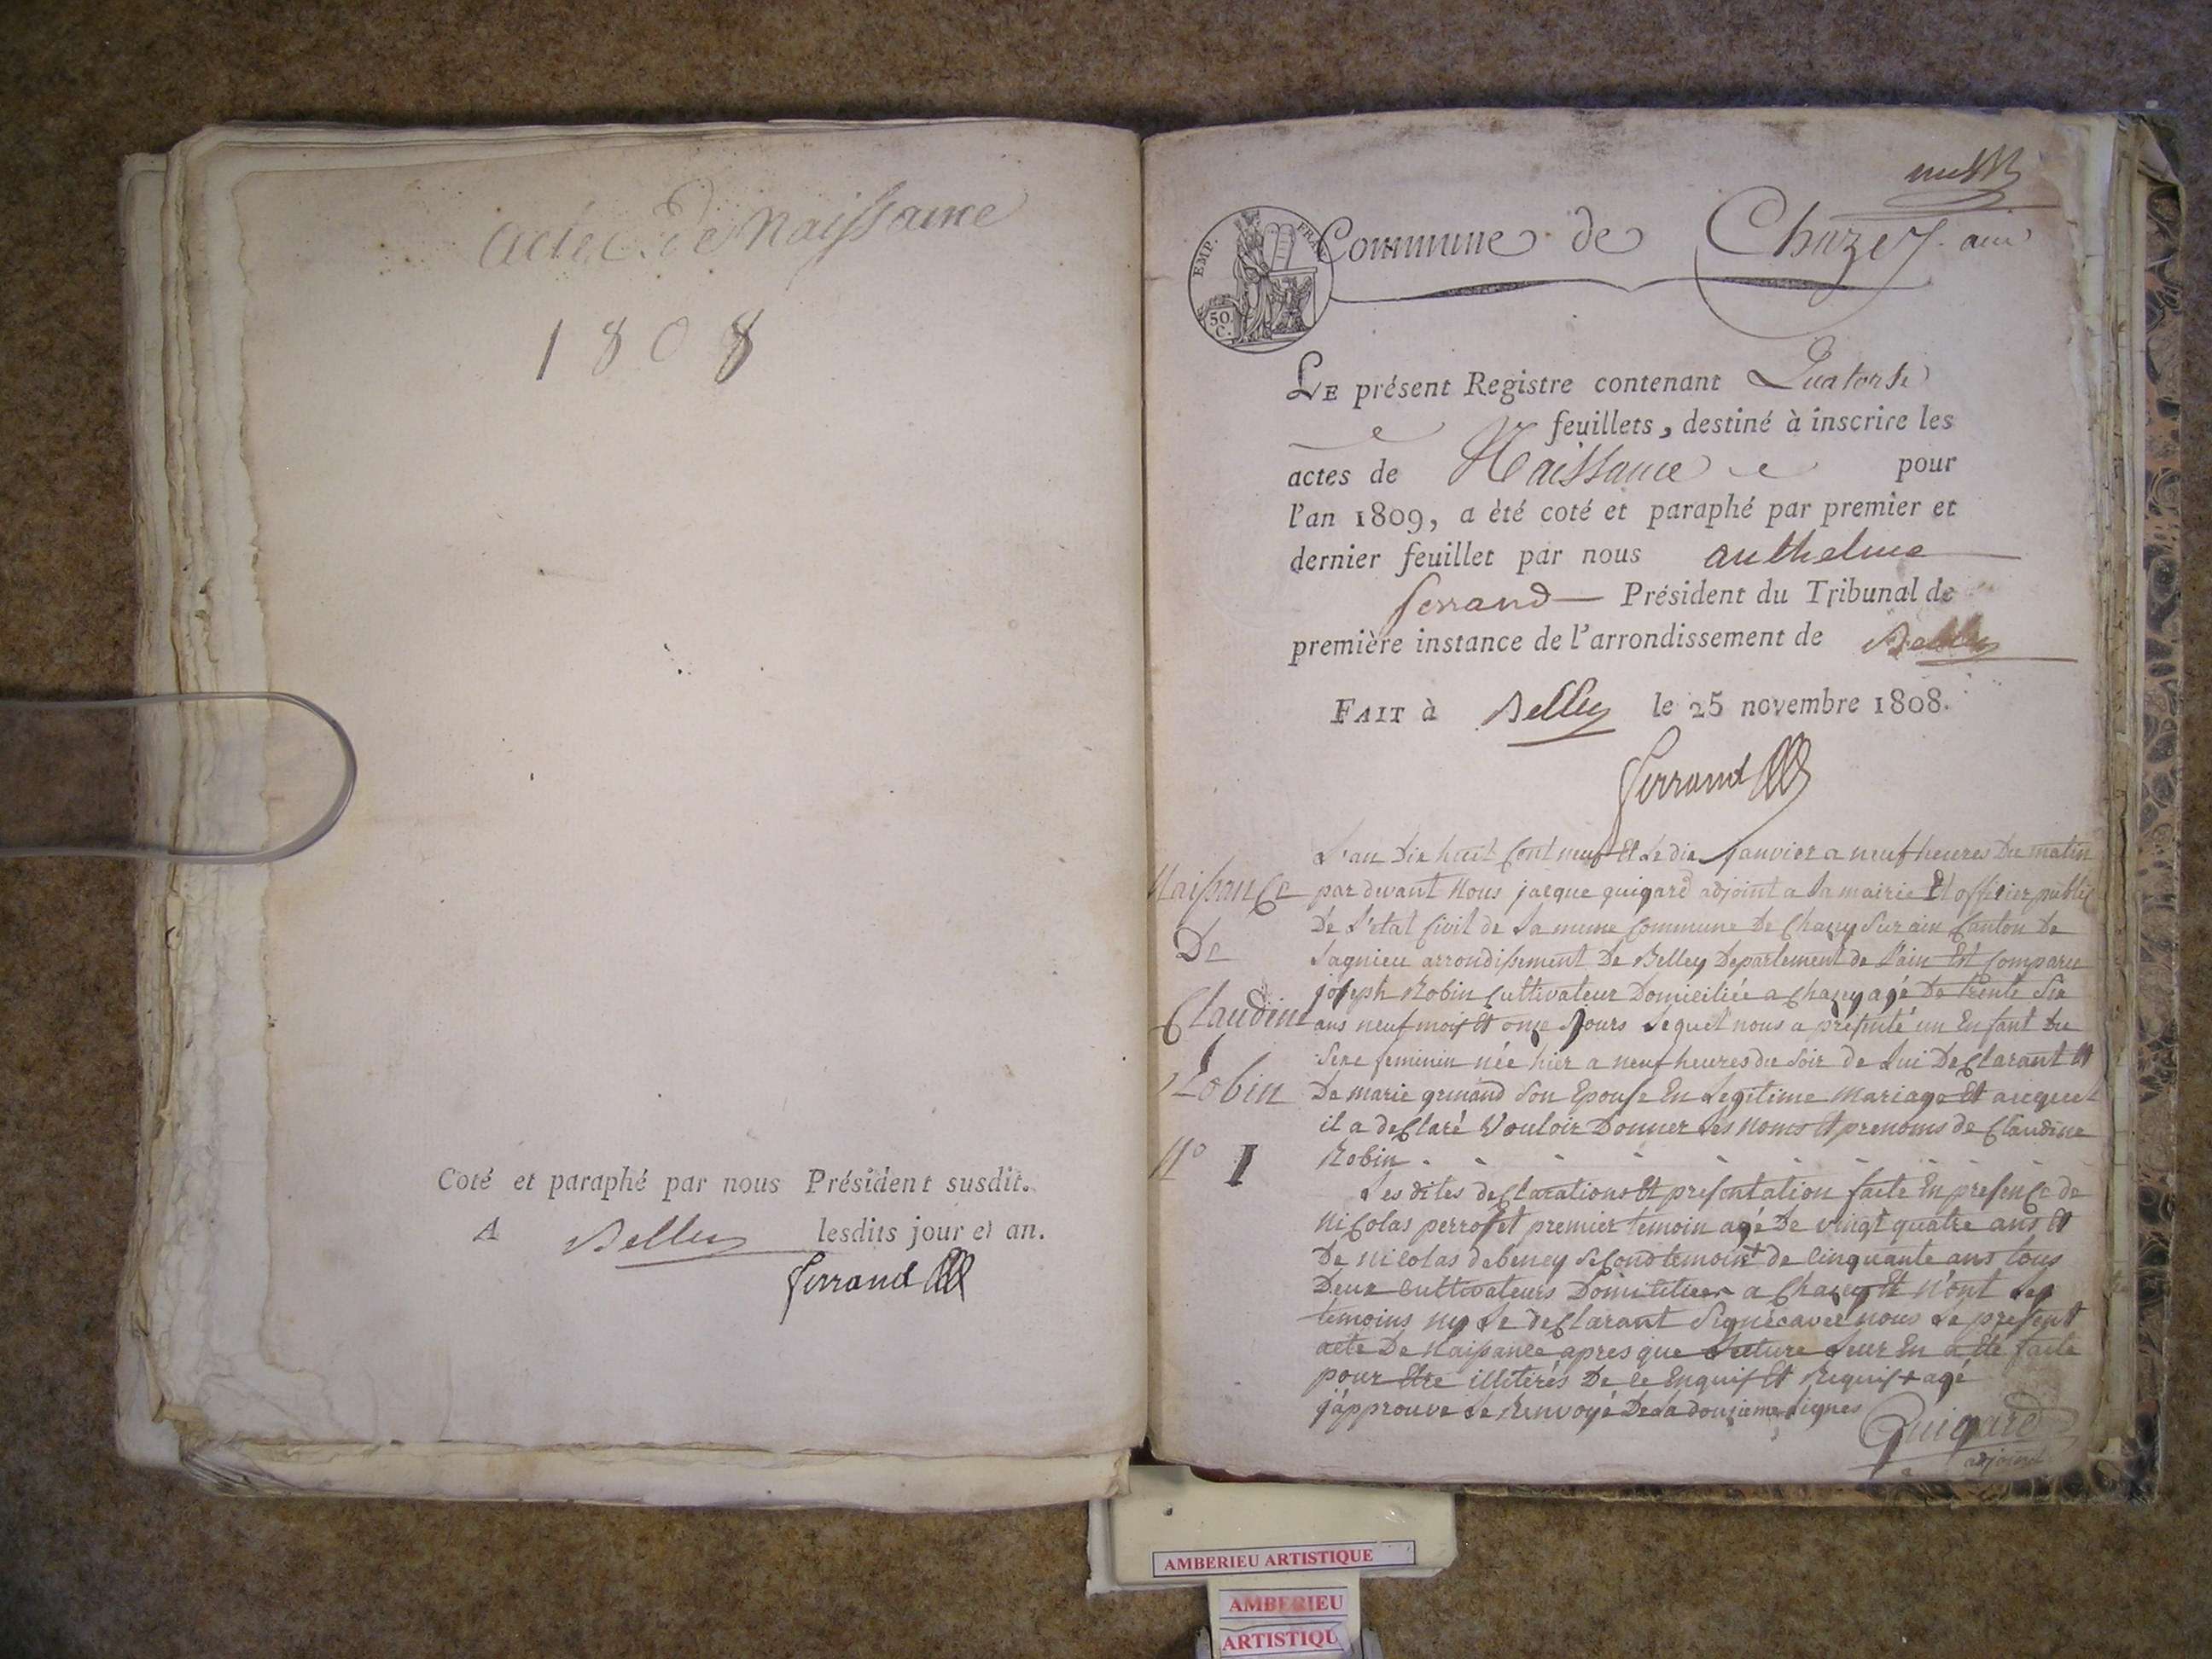 Actes de Naissance
1808
Coté et paraphé par nous Président susdit.
A Belley lesdits jour et an.
Ferrand
EMP. FRAN.
50 C.
Commune de Chazey ain
LE présent Registre contenant Quatorze
feuillets, destiné à inscrire les
actes de Naissance pour
l'an 1809, a èté coté et paraphé par premier et
dernier feuillet par nous anthelme
ferrand Président du Tribunal de
première instance de l'arrondissement de Belley
FAIT à Belley le 25 novembre 1808.
Ferrand
Naissance
De
Claudine
Robin
N° 1
L'an Dix huit Cent neuf Et Le dix Janvier a neuf heures Du matin
par devant Nous jacque guigard adjoint a La mairie Et officier public
De L'etat Civil de La meme Commune De Chazey Sur ain Canton De
Lagnieu arrondissement De Belley Departement de L'ain Est Comparu
joseph Robin Cultivateur Domiciliée a Chazey agé De trente Six
ans neuf mois Et onze Jours Lequel nous a presenté un Enfant Du
Sexe feminin née hier a neuf heures du Soir de Lui Declarant Et
De marie grinand Son Epouse En Legitime Mariage Et auquel
il a declaré Vouloir Donner Les Noms Et prenoms de Claudine
Robin
Les dites declarations Et presentation faite En presence de
Nicolas perroset premier temoin agé De vingt quatre ans Et
De nicolas debeney Second temoin + de Cinquante ans tous
Deux Cultivateurs Domicilier a Chazey Et N'ont Les
temoins ny Le declarant Signéc avec nous Le present
acte De Naissance apres que Lecture Leur En a Eté faite
pour Etre illetirés De Ce Enquis Et Requis + agé
j'approuve Le Renvoyé De La douzieme Lignes
Guigard
adjoint
AMBERIEU ARTISTIQUE
AMBERIEU
ARTISTIQU